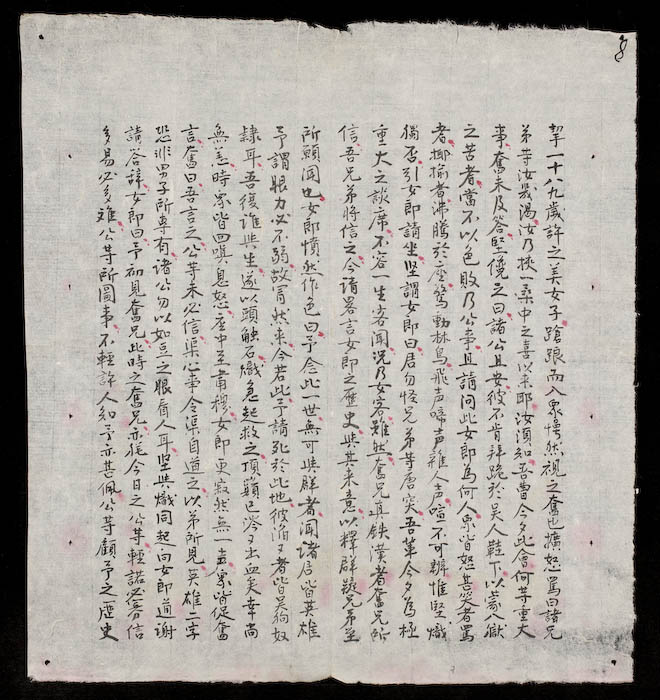 挈一十八九歲許之美女子蹌踉而入衆愕然視之奮也擴怒罵曰諸兄
弟等汝幾渴汝乃挾桑中之喜以来耶汝須知吾曹今夕此會何等重大
事奮未及答堅僥之曰諸公且安彼不肯拜跪於吳人鞋下以蒙入獄
之苦者當不以色敗乃公事且請问此女郎為何人衆皆怒甚笑者罵
者揶揄者沸騰於座驚動林鳥飛声啼声雜人声喧不可辨惟堅熾
獨否引女郎請坐堅謂女郎曰居勿怪兄弟等唐突吾輩今夕為極
重大之談席不容一生客闻況乃女客雖然奮兄真鉄漢者奮兄所
信吾兄弟将信之今請畧言女郎之歷史與其来意以釋群疑兄弟輩
所願闻也女郎憤然作色曰予念此一世無可與群者闻諸居皆英雄
予謂眼力必不弱故冒然来今若此予請死於此地彼滔〻者皆吳狗奴
隸耳吾復誰與生遂以頭触石熾急起救之頂顙已冷又出血矣幸尚
無恙時衆皆四嘆息怒座中至肅穆女郎更寂然無一言衆皆促奮
言奮曰吾言之公等未必信渠心事令渠自道之以弟所見英雄二字
恐非男子所専有諸公勿以如豆之眼看人耳堅與熾同起向女郎道謝
請答辞女郎曰予初見奮兄此時之奮兄亦猶今日之公等輕諾必寡信
多易必多难公等所圖事不輕許人知予亦甚佩公等顧予之歷史